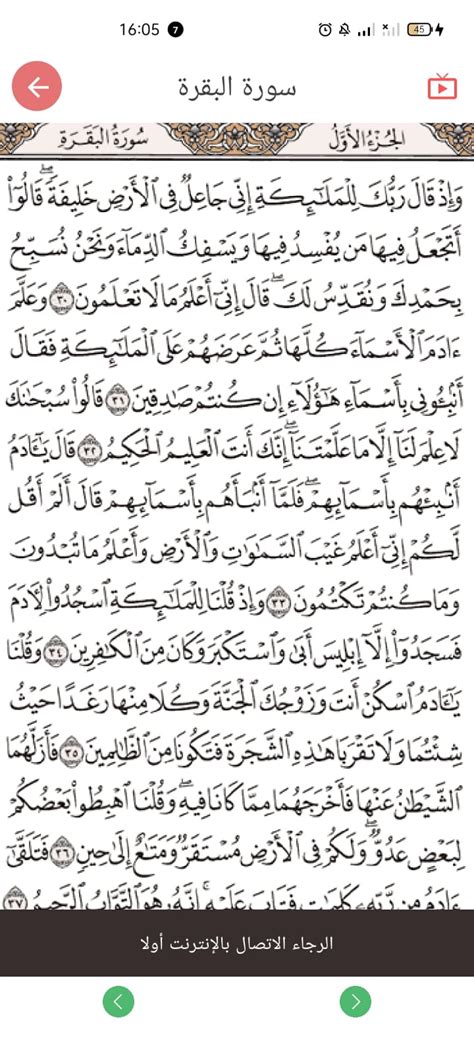 16:05 7 45
سورة البقرة
الجُزْءُ الأَوَّلُ سُورَةُ البَقَرَةِ
وَإِذْ قَالَ رَبُّكَ لِلْمَلَٰٓئِكَةِ إِنِّى جَاعِلٌ فِى ٱلْأَرْضِ خَلِيفَةً ۖ قَالُوٓا۟
أَتَجْعَلُ فِيهَا مَن يُفْسِدُ فِيهَا وَيَسْفِكُ ٱلدِّمَآءَ وَنَحْنُ نُسَبِّحُ
بِحَمْدِكَ وَنُقَدِّسُ لَكَ ۖ قَالَ إِنِّىٓ أَعْلَمُ مَا لَا تَعْلَمُونَ ٣٠ وَعَلَّمَ
ءَادَمَ ٱلْأَسْمَآءَ كُلَّهَا ثُمَّ عَرَضَهُمْ عَلَى ٱلْمَلَٰٓئِكَةِ فَقَالَ
أَنۢبِـُٔونِى بِأَسْمَآءِ هَٰٓؤُلَآءِ إِن كُنتُمْ صَٰدِقِينَ ٣١ قَالُوا۟ سُبْحَٰنَكَ
لَا عِلْمَ لَنَآ إِلَّا مَا عَلَّمْتَنَآ ۖ إِنَّكَ أَنتَ ٱلْعَلِيمُ ٱلْحَكِيمُ ٣٢ قَالَ يَٰٓـَٔادَمُ
أَنۢبِئْهُم بِأَسْمَآئِهِمْ ۖ فَلَمَّآ أَنۢبَأَهُم بِأَسْمَآئِهِمْ قَالَ أَلَمْ أَقُل
لَّكُمْ إِنِّىٓ أَعْلَمُ غَيْبَ ٱلسَّمَٰوَٰتِ وَٱلْأَرْضِ وَأَعْلَمُ مَا تُبْدُونَ
وَمَا كُنتُمْ تَكْتُمُونَ ٣٣ وَإِذْ قُلْنَا لِلْمَلَٰٓئِكَةِ ٱسْجُدُوا۟ لِءَادَمَ
فَسَجَدُوٓا۟ إِلَّآ إِبْلِيسَ أَبَىٰ وَٱسْتَكْبَرَ وَكَانَ مِنَ ٱلْكَٰفِرِينَ ٣٤ وَقُلْنَا
يَٰٓـَٔادَمُ ٱسْكُنْ أَنتَ وَزَوْجُكَ ٱلْجَنَّةَ وَكُلَا مِنْهَا رَغَدًا حَيْثُ
شِئْتُمَا وَلَا تَقْرَبَا هَٰذِهِ ٱلشَّجَرَةَ فَتَكُونَا مِنَ ٱلظَّٰلِمِينَ ٣٥ فَأَزَلَّهُمَا
ٱلشَّيْطَٰنُ عَنْهَا فَأَخْرَجَهُمَا مِمَّا كَانَا فِيهِ ۖ وَقُلْنَا ٱهْبِطُوا۟ بَعْضُكُمْ
لِبَعْضٍ عَدُوٌّ ۖ وَلَكُمْ فِى ٱلْأَرْضِ مُسْتَقَرٌّ وَمَتَٰعٌ إِلَىٰ حِينٍ ٣٦ فَتَلَقَّىٰٓ
ءَادَمُ مِن رَّبِّهِۦ كَلِمَٰتٍ فَتَابَ عَلَيْهِ ۚ إِنَّهُۥ هُوَ ٱلتَّوَّابُ ٱلرَّحِيمُ ٣٧
الرجاء الاتصال بالإنترنت أولا